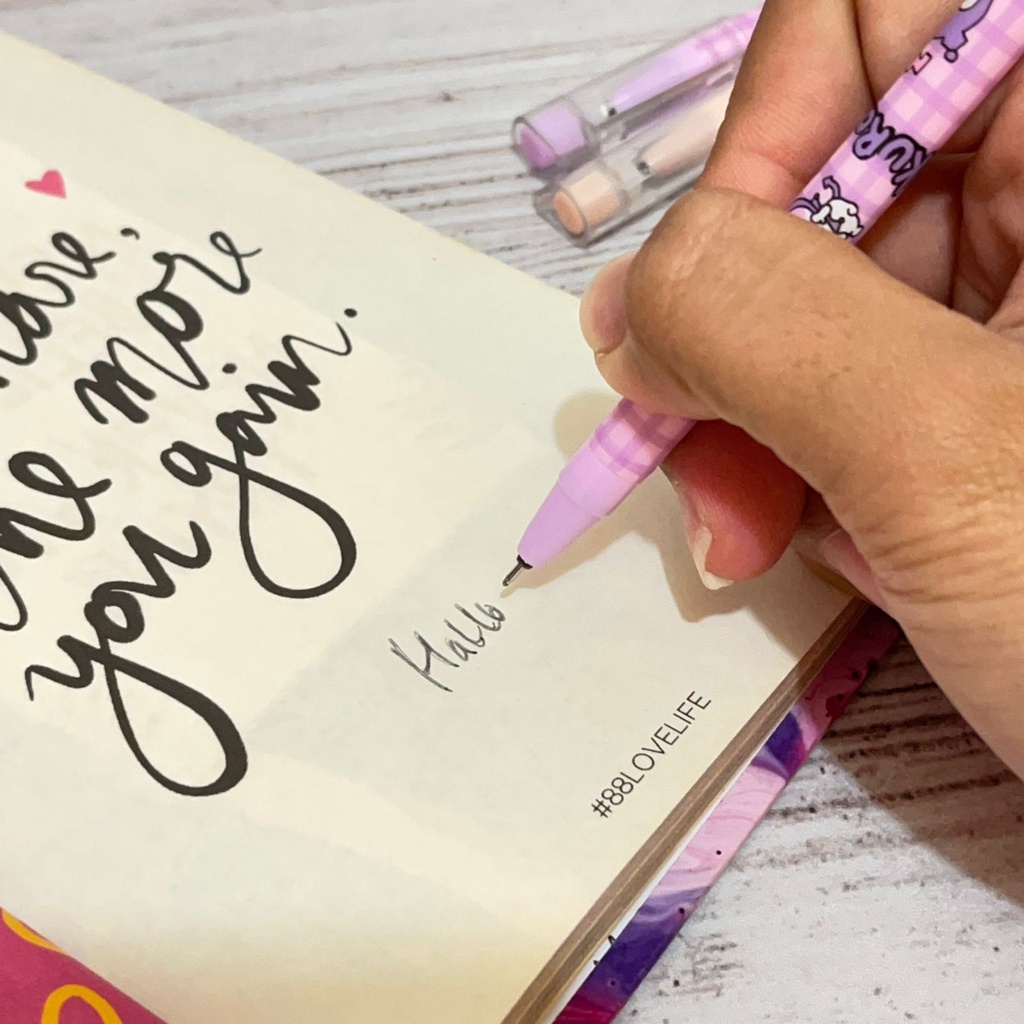 more
you gain.
Hallo
#88LOVELIFE
KURO